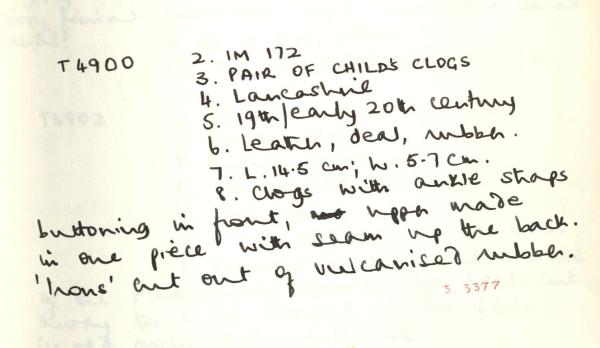 T4900 2. IM 172
3. PAIR OF CHILD'S CLOGS
4. Lancashire
5. 19th/early 20th century
6. Leather, deal, rubber.
7. L. 14.5 cm; W. 5.7 cm.
8. Clogs with ankle straps
buttoning in front, upper made
in one pièce with seam up the back.
'Irons' cut out of vulcanised rubber.
3.3377